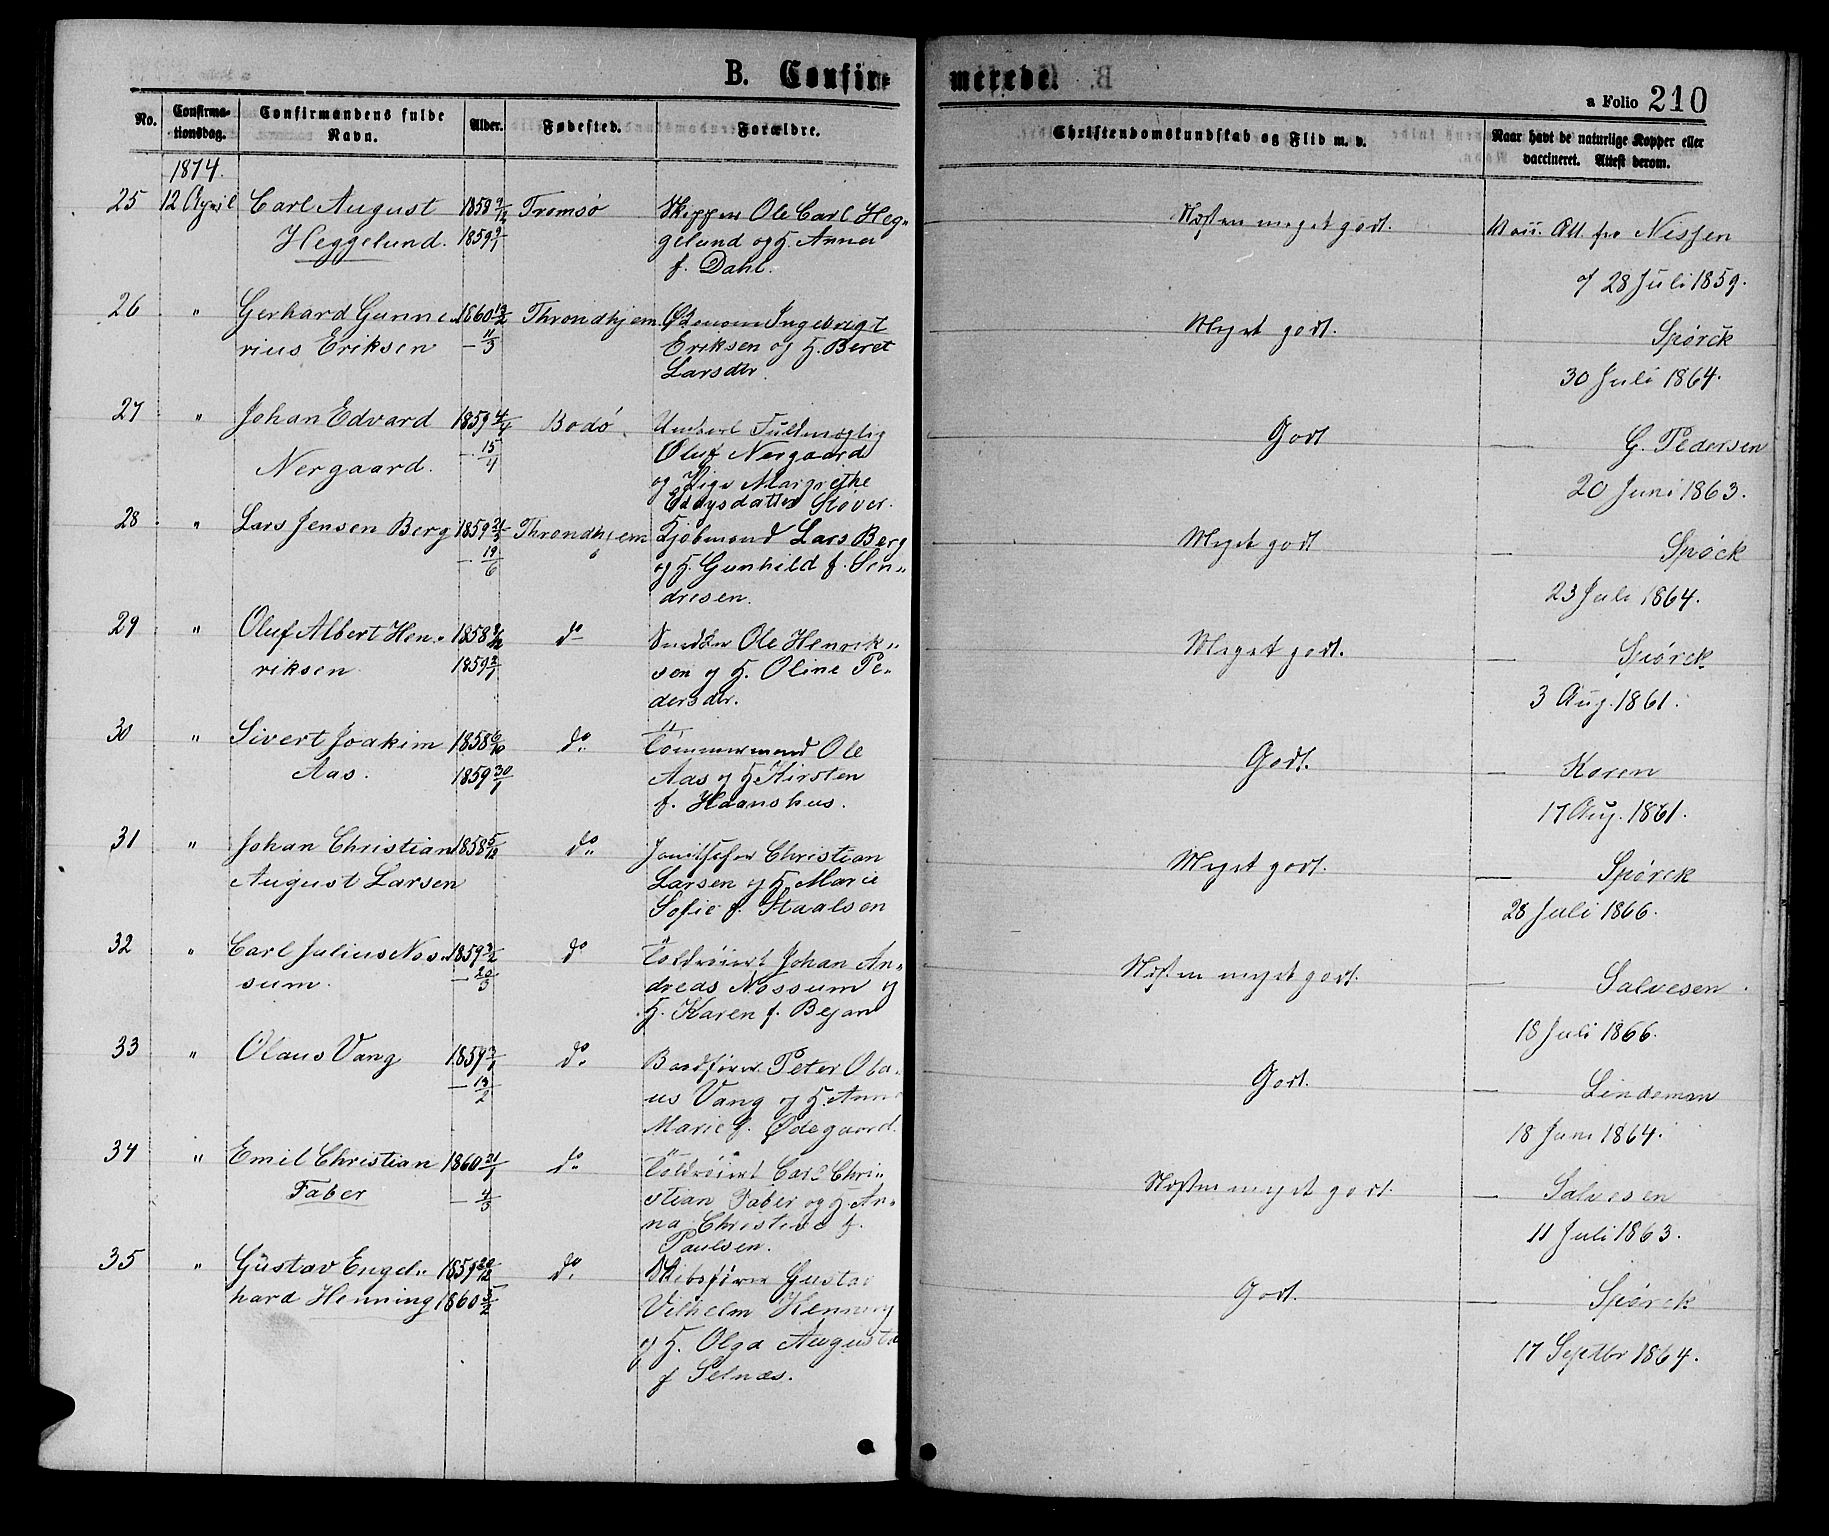 B. Confir=
No.
Confirma-
tionsdag.
Confirmandens fulde
Navn.
Alder.
Fødested.
Forældre.
1874.
25 12 April Carl August 1858 9/12 Tromsø Skipper Ole Carl Heg-
Heggelund. 1859 9/1 gelund og H. Anna
f. Dahl.
26 " Gerhard Gunne- 1860 Throndhjem Ingebrigt
rius Eriksen - 11/3 Eriksen og H. Beret
Larsdtr.
27 " Johan Edvard 1859 4/4 Bodø Fuldmægtig
Nergaard. - 15/4 Oluf Nergaard
og Pige Margrethe
Støver.
28 " Lars Jensen Berg 1859 21/5 Throndhjem Kjøbmand Lars Berg
- 19/6 og H. Gunhild f. Sen-
dresen.
29 " Oluf Albert Hen- 1858 do Snedker Ole Henrik-
riksen 1859 2/1 sen og H. Oline Pe-
dersdtr.
30 " Sivert Joakim 1858 do Tømmermand Ole
Aas. 1859 30/1 Aas og H. Kirsten
f. Haanshus.
31 " Johan Christian 1858 5/12 do Christian
August Larsen Larsen og H. Marie
Sofie f. Staalsen
32 " Carl Julius Nos- 1859 3/2 do Toldroiert Johan An-
sum. - 20/3 dreas Nossum og
H. Karen f. Bejan
33 " Olaus Vang 1859 3/1 do Baadfører Peter Ola-
- 13/2 us Vang og H. Anne
Marie f. Ødegaard.
34 " Emil Christian 1860 21/1 do Toldroiert Carl Chri-
Faber - 4/3 stian Faber og H. An-
na Christine f.
Paulsen.
35 " Gustav Engel- 1859 20/12 do Skibsfører Gustav
hard Henning 1860 5/2 Vilhelm Henning
og H. Olga Augusta
f Selnæs.
merede
a Folio 210
Christendomskundskab og Flid m. v.
Naar havt de naturlige Kopper eller
vaccineret. Attest derom.
Næsten meget godt. Vacc. Att. fra Nissen
af 28 Juli 1859.
Meget godt. Spørck
30 Juli 1864.
Godt — G. Pedersen
20 Juni 1863.
Meget godt — Spøck
23 Juli 1864.
Meget godt. — Spørck
3 Aug. 1861.
Godt. — Koren
17 Aug. 1861.
Meget godt. — Spørck
28 Juli 1866.
Næsten meget godt. — Salvesen
18 Juli 1866.
Godt. — Lindeman
18 Juni 1864.
Næsten meget godt. — Salvesen
11 Juli 1863.
Godt. — Spørck
17 Septbr 1864.